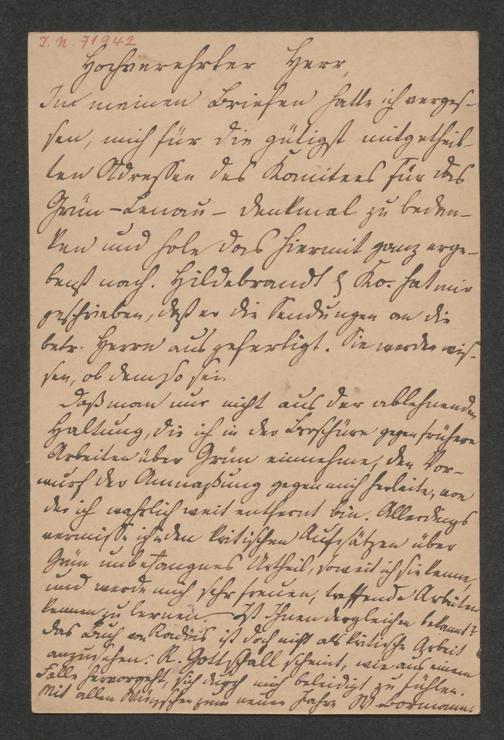 J. N. 71942
Hochverehrter Herr,
In meinen Briefen hatte ich verges-
sen, mich für die gütigst mitgetheil-
ten Adressen des Komitees für das
Grün-Lenau-Denkmal zu bedan-
ken und hole das hiermit ganz erge-
benst nach. Hildebrandt & Ko. hat mir
geschrieben, daß er die Sendungen an die
betr. Herrn ausgefertigt. Sie werden wis-
sen, ob dem so sei.
Daß man nur nicht aus der ablehnenden
Haltung, die ich in der Broschüre gegen frühere
Arbeiten über Grün einnehme, den Vor-
wurf der Anmaßung gegen mich herleite, von
der ich wahrlich weit entfernt bin. Allerdings
vermisse ich in den kritischen Aufsätzen über
Grün unbefangnes Urtheil, soweit ich sie kenne,
und werde mich sehr freuen, treffende Arbeiten
kennen zu lernen. — Ist Ihnen dergleichen bekannt?
Das Buch von Radics ist doch nicht als kritische Arbeit
anzusehen. R. Gottschall scheint, wie aus einem
Falle hervorgeht, sich durch mich beleidigt zu fühlen.
Mit allen Wünschen zum neuen Jahre W Bormann.